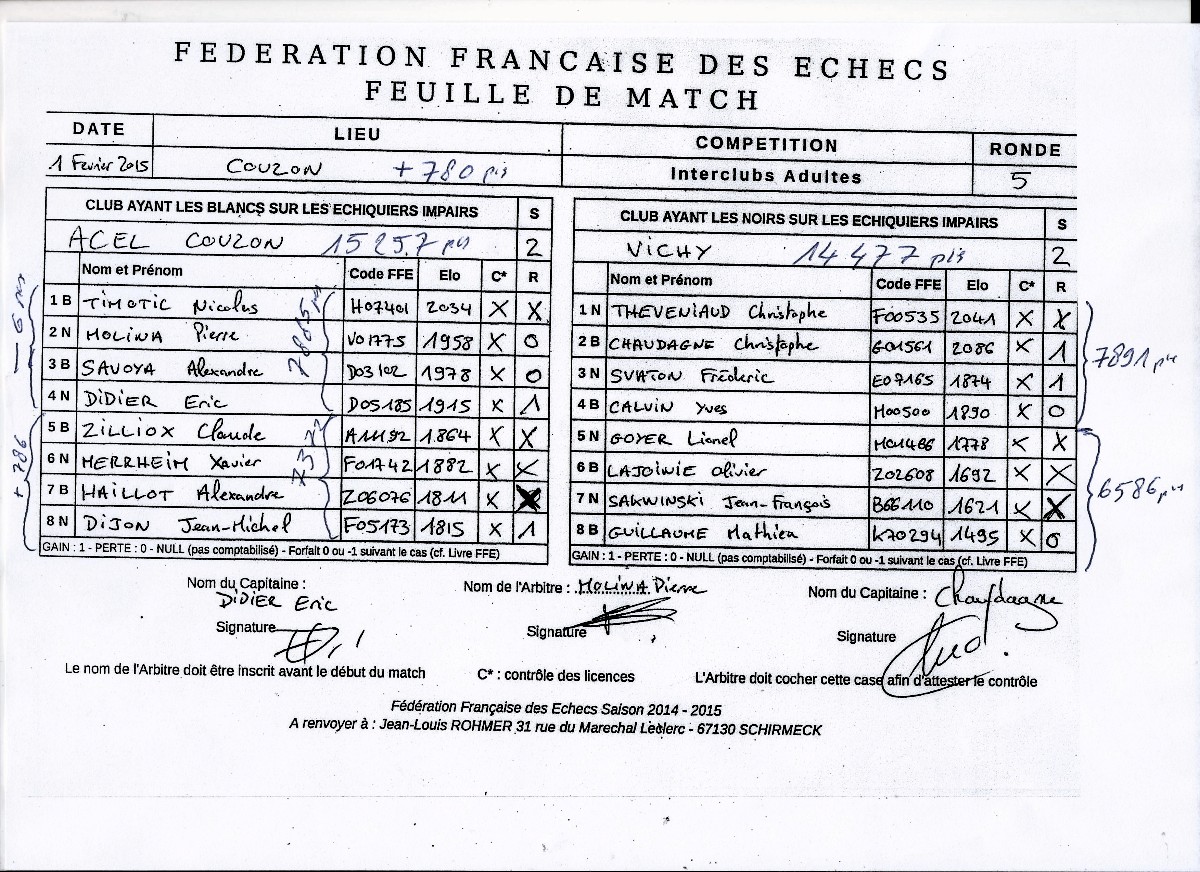 FEDERATION FRANCAISE DES ECHECS
FEUILLE DE MATCH
DATE LIEU COMPETITION RONDE
1 Fevrier 2015 COUZON +780 pts Interclubs Adultes 5
CLUB AYANT LES BLANCS SUR LES ECHIQUIERS IMPAIRS S
ACEL COUZON 15257 pts 2
Nom et Prénom Code FFE Elo C* R
1 B TIMOTIC Nicolas H07401 2034 X X
2 N MOLINA Pierre V01775 1958 X 0
3 B SAVOYA Alexandre D03102 1978 X 0
4 N DIDIER Eric D05185 1915 X 1
5 B ZILLIOX Claude A11192 1864 X X
6 N MERRHEIM Xavier F01742 1882 X X
7 B HAILLOT Alexandre Z06076 1811 X X
8 N DIJON Jean-Michel F05173 1815 X 1
GAIN : 1 - PERTE : 0 - NULL (pas comptabilisé) - Forfait 0 ou -1 suivant le cas (cf. Livre FFE)
- 6 pts
+ 786
7885 pts
7372
CLUB AYANT LES NOIRS SUR LES ECHIQUIERS IMPAIRS S
VICHY 14477 pts 2
Nom et Prénom Code FFE Elo C* R
1 N THEVENIAUD Christophe F00535 2041 X X
2 B CHAUDAGNE Christophe G01561 2086 X 1
3 N SVATON Fréderic E07165 1874 X 1
4 B CALVIN Yves H00500 1890 X 0
5 N GOYER Lionel M01466 1778 X X
6 B LAJOINIE Olivier Z02608 1692 X X
7 N SAKWINSKI Jean-François B66110 1621 X X
8 B GUILLAUME Mathieu K70294 1495 X 0
GAIN : 1 - PERTE : 0 - NULL (pas comptabilisé) - Forfait 0 ou -1 suivant le cas (cf. Livre FFE)
7891 pts
6586 pts
Nom du Capitaine :
DIDIER Eric
Signature
Nom de l'Arbitre : MOLINA Pierre
Signature
Nom du Capitaine : Chaudagne
Signature
Le nom de l'Arbitre doit être inscrit avant le début du match C* : contrôle des licences L'Arbitre doit cocher cette case afin d'attester le contrôle
Fédération Française des Echecs Saison 2014 - 2015
A renvoyer à : Jean-Louis ROHMER 31 rue du Marechal Leclerc - 67130 SCHIRMECK